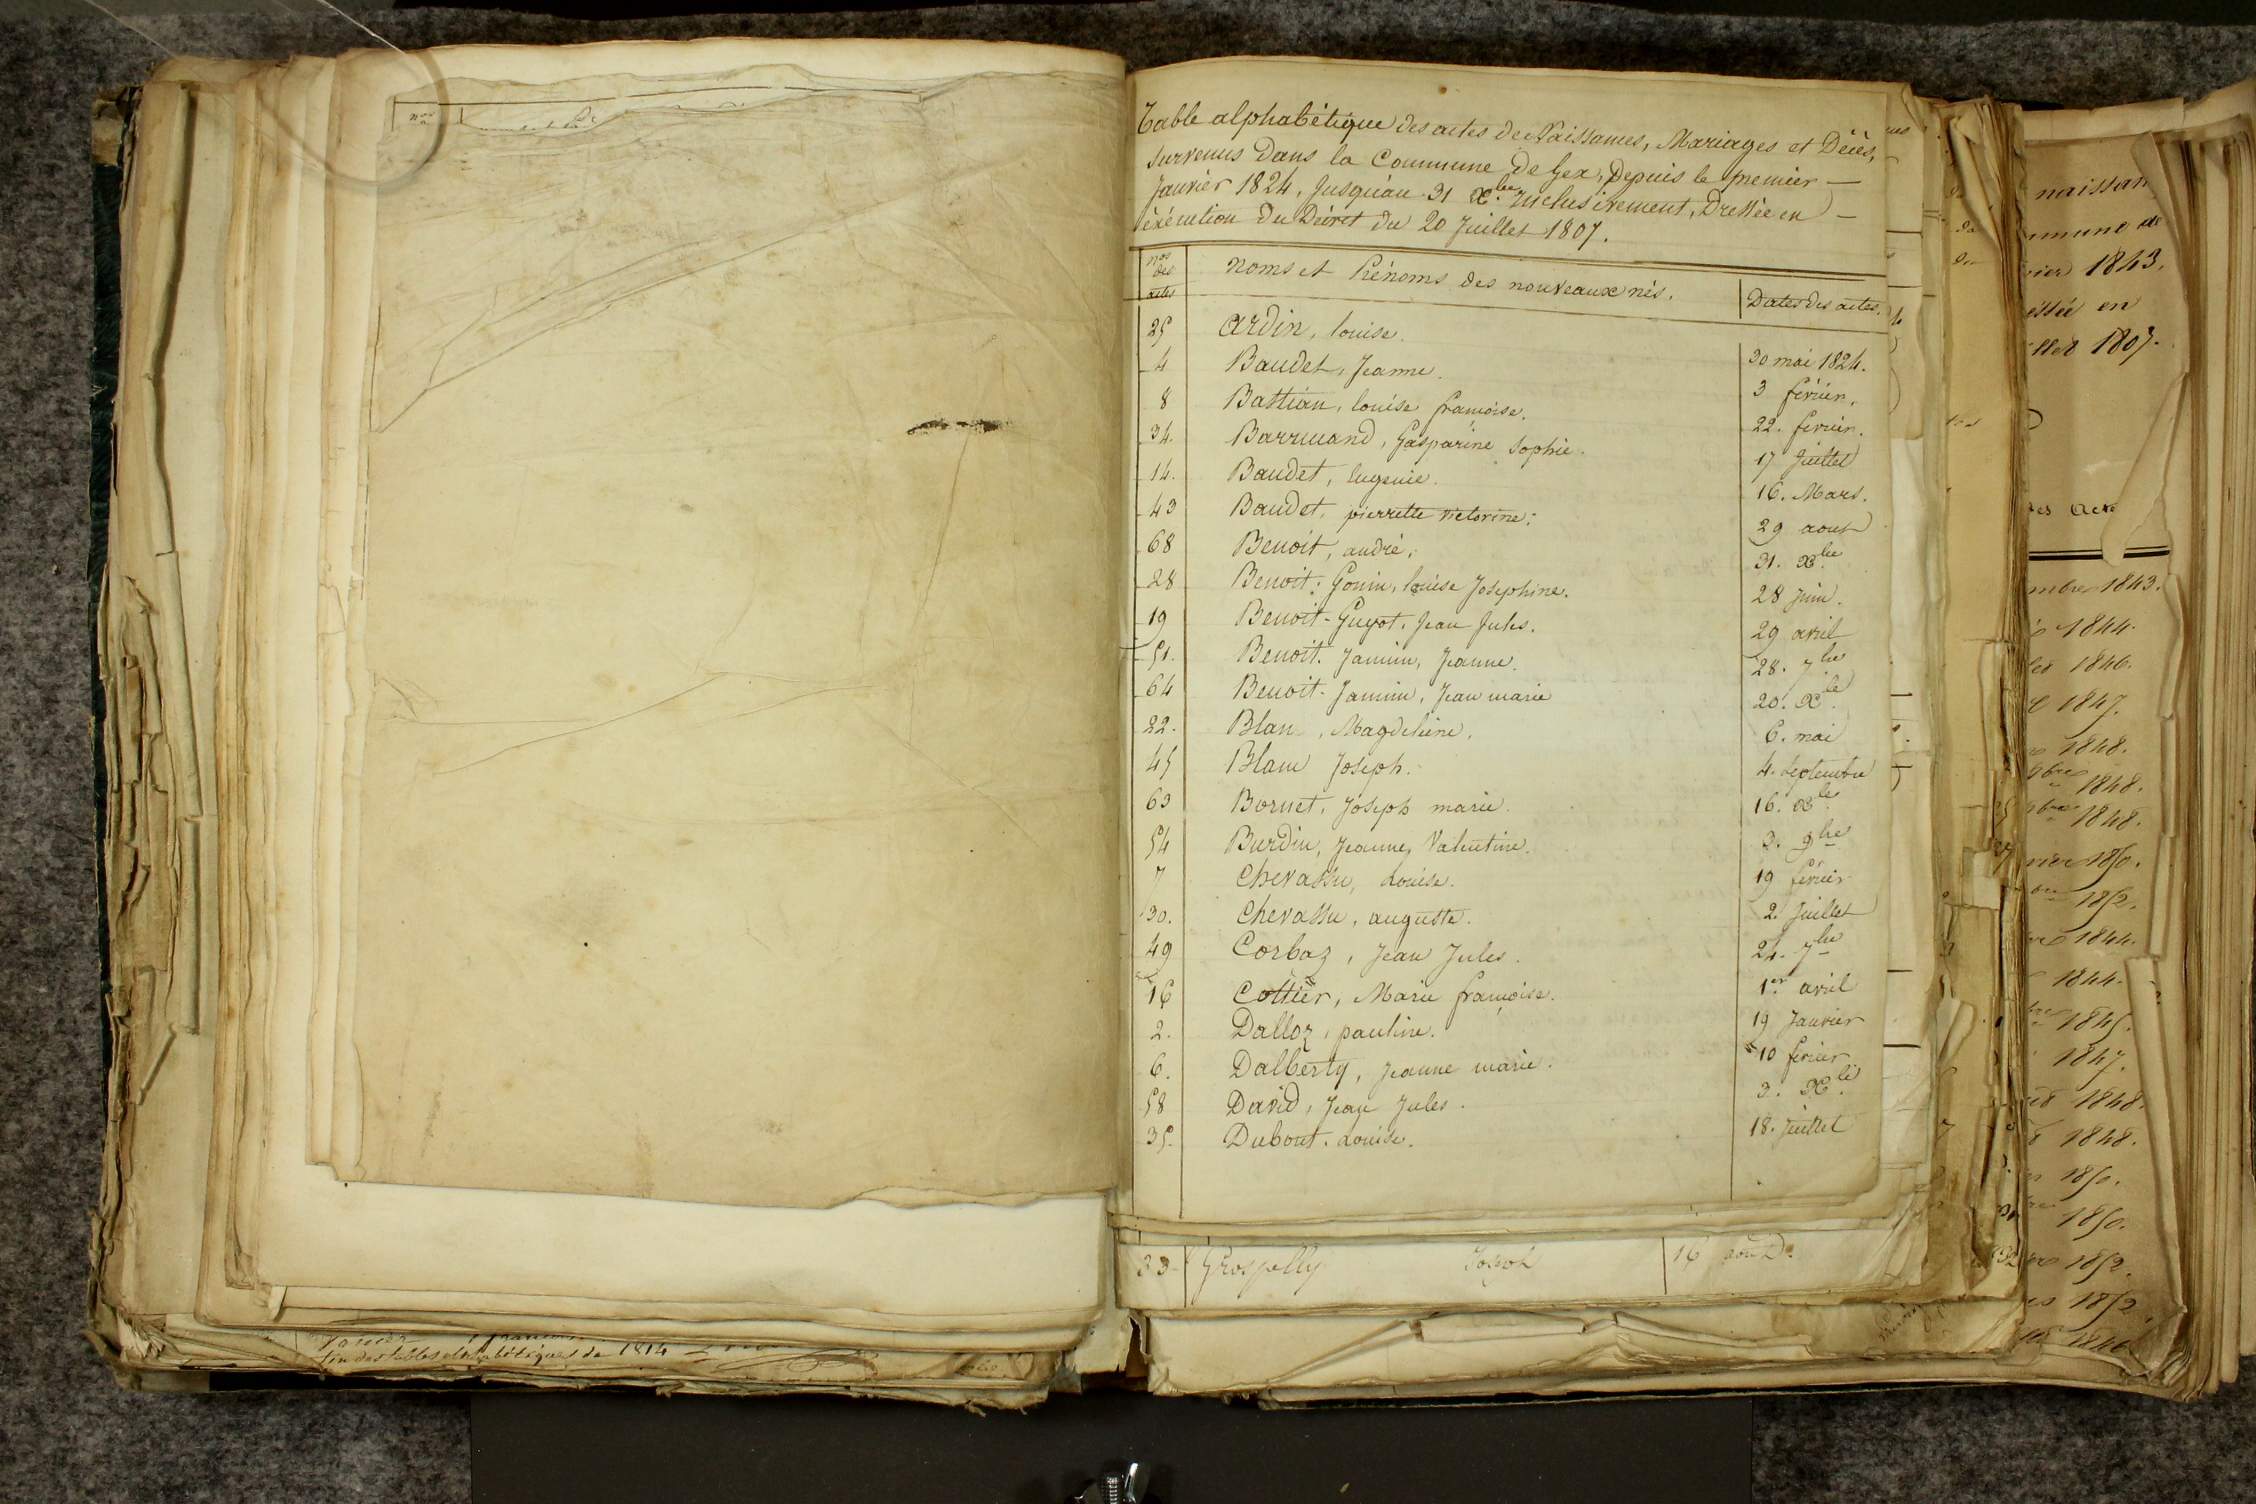 Table alphabétique des actes de Naissances, Mariages et Décès,
survenus Dans la Commune de Gex, Depuis le premier —
Janvier 1824, Jusqu'au 31 Xbre Inclusivement, Dressée en —
éxécution du Décret du 20 Juillet 1807.
nos des actes | noms et Prénoms des nouveaux nés. | Dates des actes.
25 Ardin, louise. 30 mai 1824.
4 Baudet, Jeanne. 3 février.
8 Bastian, louise françoise. 22. février.
34. Barruand, Gasparine Sophie. 17 Juillet
14. Baudet, Eugenie. 16. Mars.
43 Baudet, pierrette victorine. 29 aout
68 Benoit, andré. 31. Xbre
28 Benoit-Gonin, louise Josephine. 28 Juin.
19 Benoit-Guyot, Jean Jules. 29 avril
51. Benoit-Jamin, Jeanne. 28. 7bre
64 Benoit-Jamin, Jean marie 20. Xbre
22. Blanc, Magdeleine. 6. mai
45 Blanc Joseph. 4. Septembre
63 Bornet, Joseph marie. 16. Xbre
54 Burdin, Jeanne, Valentine. 3. 9bre
7 Chevassu, Louise. 19 février
30. Chevassu, auguste. 2. Juillet
49 Corbaz, Jean Jules. 24. 7bre
16 Cottier, Marie françoise. 1er avril
2. Dalloz, pauline. 19 Janvier
6. Dalberty, Jeanne marie. 10 février
58 David, Jean Jules. 3. Xbre
35. Dubout, Louise. 18. Juillet
33 Grospelly Joseph 16 aout
fin des tables alphabétiques de 1814
naissan
mmune de
1843.
en
1807.
des Acte
mbre 1843.
1844.
1846.
1847.
1848.
9bre 1848.
1848.
1850.
1852.
1844.
1844.
1845.
1847.
1848.
1848.
1850.
1850.
1852.
1852
1846